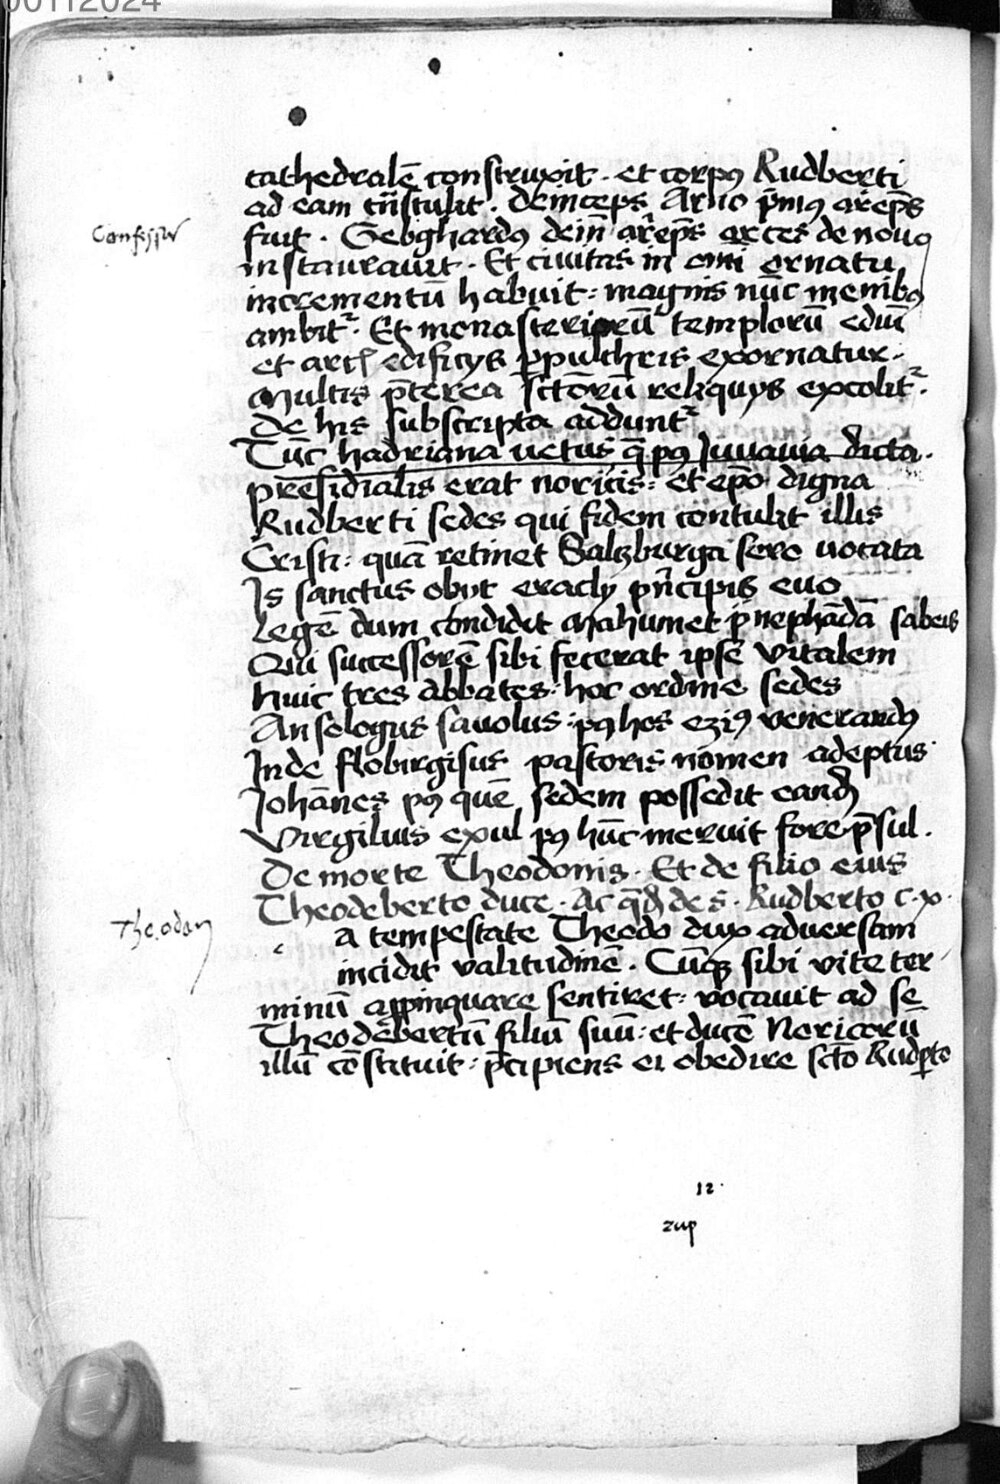 00112024
cathedralē construxit · et corpꝰ Rudberti
ad eam trāstulit . deinceps Arno p̄mꝰ arēps
fuit . Gebghardus dein̄ arēps arces de nouo
Confessor
instaurauit . Et ciuitas in omī ernatu
incrementū habuit : magnis nūc menibꝰ
ambitᷣ . Et monasteriorū templorū ediuī
et arcꝭ edificys ꝑpulchris exornatur .
Multis p̄terea sctōrū reliquys excolitᷣ .
De his subscripta adduntᷣ
Tūc hadriana uetus q̄ pꝰ Juuauia dicta .
presidialis erat noricis : et ep̄o digna
Rudberti sedes qui fidem contulit illis
Cristi : quā retinet Salczburga sero uocata
Is sanctus obyt eracly p̄ncipis euo
Legē dum condidit Mahumet p nephādā sabeis
Qui successorē sibi fecerat ipse vitalem
huic tres abbates : hoc ordine sedes
Ansologus sauolus : pꝰ hos eziꝰ venerandꝰ
Inde flobirgisus pastoris nomen adeptus
Johānes pꝰ quē sedem possedit eandē
Virgilius exul pꝰ hūc meruit fore p̄sul .
De morte Theodonis . Et de filio eius
Theodeberto duce . Ac q̄dā de s . Rudberto c . x .
Theodon
a tempestate Theodo dux aduersam
incidit valitudinē . Cūqꝫ sibi vite ter
minū appinquare sentiret : vocauit ad se
Theodebertū filiū suū : et ducē Noricorū
illū cōstituit : p̄cipiens ei obedire sctō Rudꝑto
12 .
zup